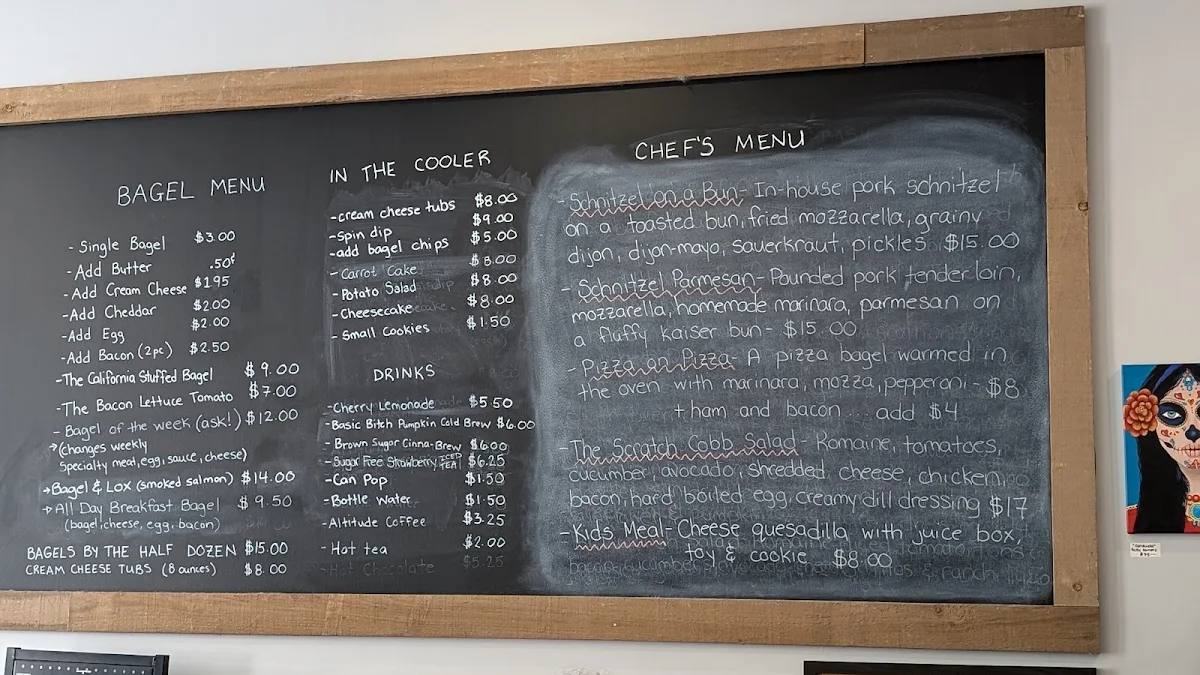 BAGEL MENU
- Single Bagel $3.00
- Add Butter .50¢
- Add Cream Cheese $1.95
- Add Cheddar $2.00
- Add Egg $2.00
- Add Bacon (2pc) $2.50
- The California Stuffed Bagel $9.00
- The Bacon Lettuce Tomato $7.00
- Bagel of the week (ask!) $12.00
→ (changes weekly
Specialty meat, egg, sauce, cheese)
→ Bagel & Lox (smoked salmon) $14.00
→ All Day Breakfast Bagel $9.50
(bagel, cheese, egg, bacon)
BAGELS BY THE HALF DOZEN $15.00
CREAM CHEESE TUBS (8 ounces) $8.00
IN THE COOLER
- cream cheese tubs $8.00
- Spin dip $9.00
- add bagel chips $5.00
- Carrot Cake $8.00
- Potato Salad $8.00
- Cheesecake $8.00
- Small Cookies $1.50
DRINKS
- Cherry Lemonade $5.50
- Basic Bitch Pumpkin Cold Brew $6.00
- Brown Sugar Cinna-Brew $6.00
- Sugar Free Strawberry ICED TEA $6.25
- Can Pop $1.50
- Bottle Water $1.50
- Altitude Coffee $3.25
- Hot tea $2.00
- Hot Chocolate $5.25
CHEF'S MENU
- Schnitzel on a Bun - In-house pork schnitzel
on a toasted bun, fried mozzarella, grainy
dijon, dijon-mayo, sauerkraut, pickles $15.00
- Schnitzel Parmesan - Pounded pork tenderloin,
mozzarella, homemade marinara, parmesan on
a fluffy kaiser bun - $15.00
- Pizza on Pizza - A pizza bagel warmed in
the oven with marinara, mozza, pepperoni - $8
+ ham and bacon .... add $4
- The Scratch Cobb Salad - Romaine, tomatoes,
cucumber, avocado, shredded, cheese, chicken,
bacon, hard boiled egg, creamy dill dressing $17
- Kids Meal - Cheese quesadilla with juice box,
toy & cookie $8.00